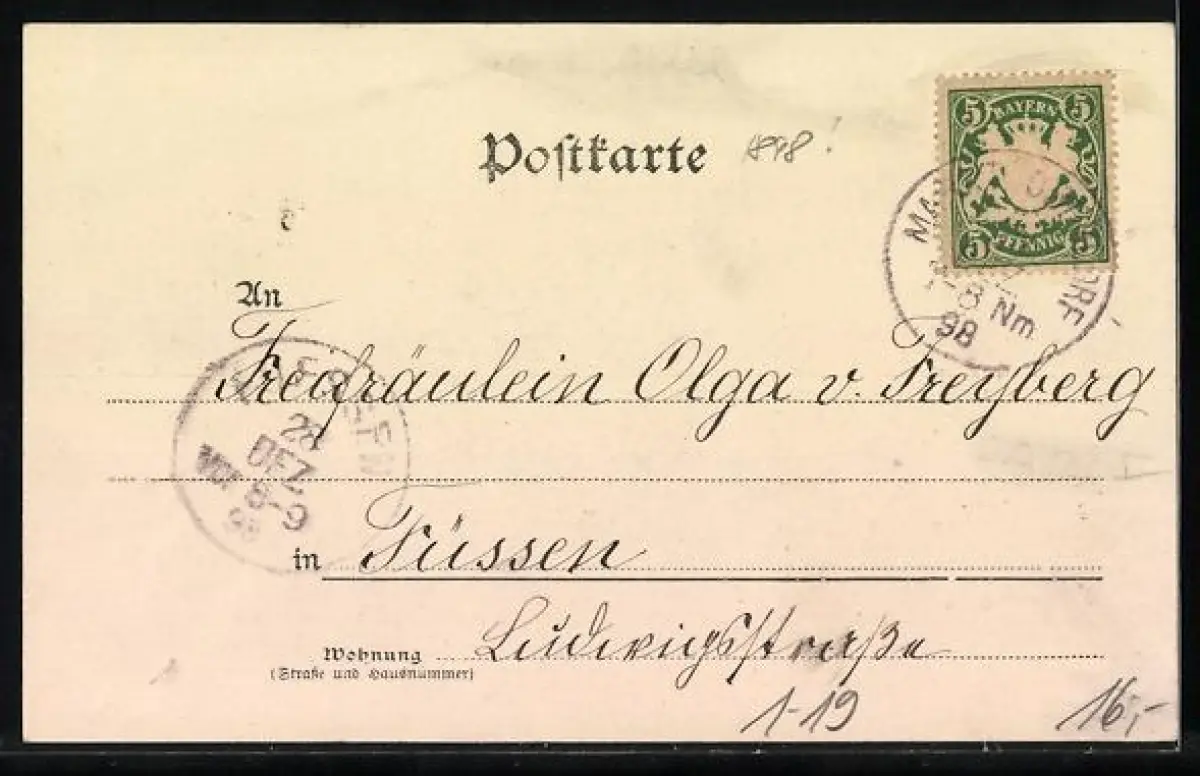 Postkarte 1898!
5 BAYERN 5
5 PFENNIG 5
8 Nm
98
An
Freifräulein Olga v. Freyberg
28
DEZ
Vor 8-9
98
in Füssen
Wohnung Ludwigsstraße
(Straße und Hausnummer)
1-19 16,-